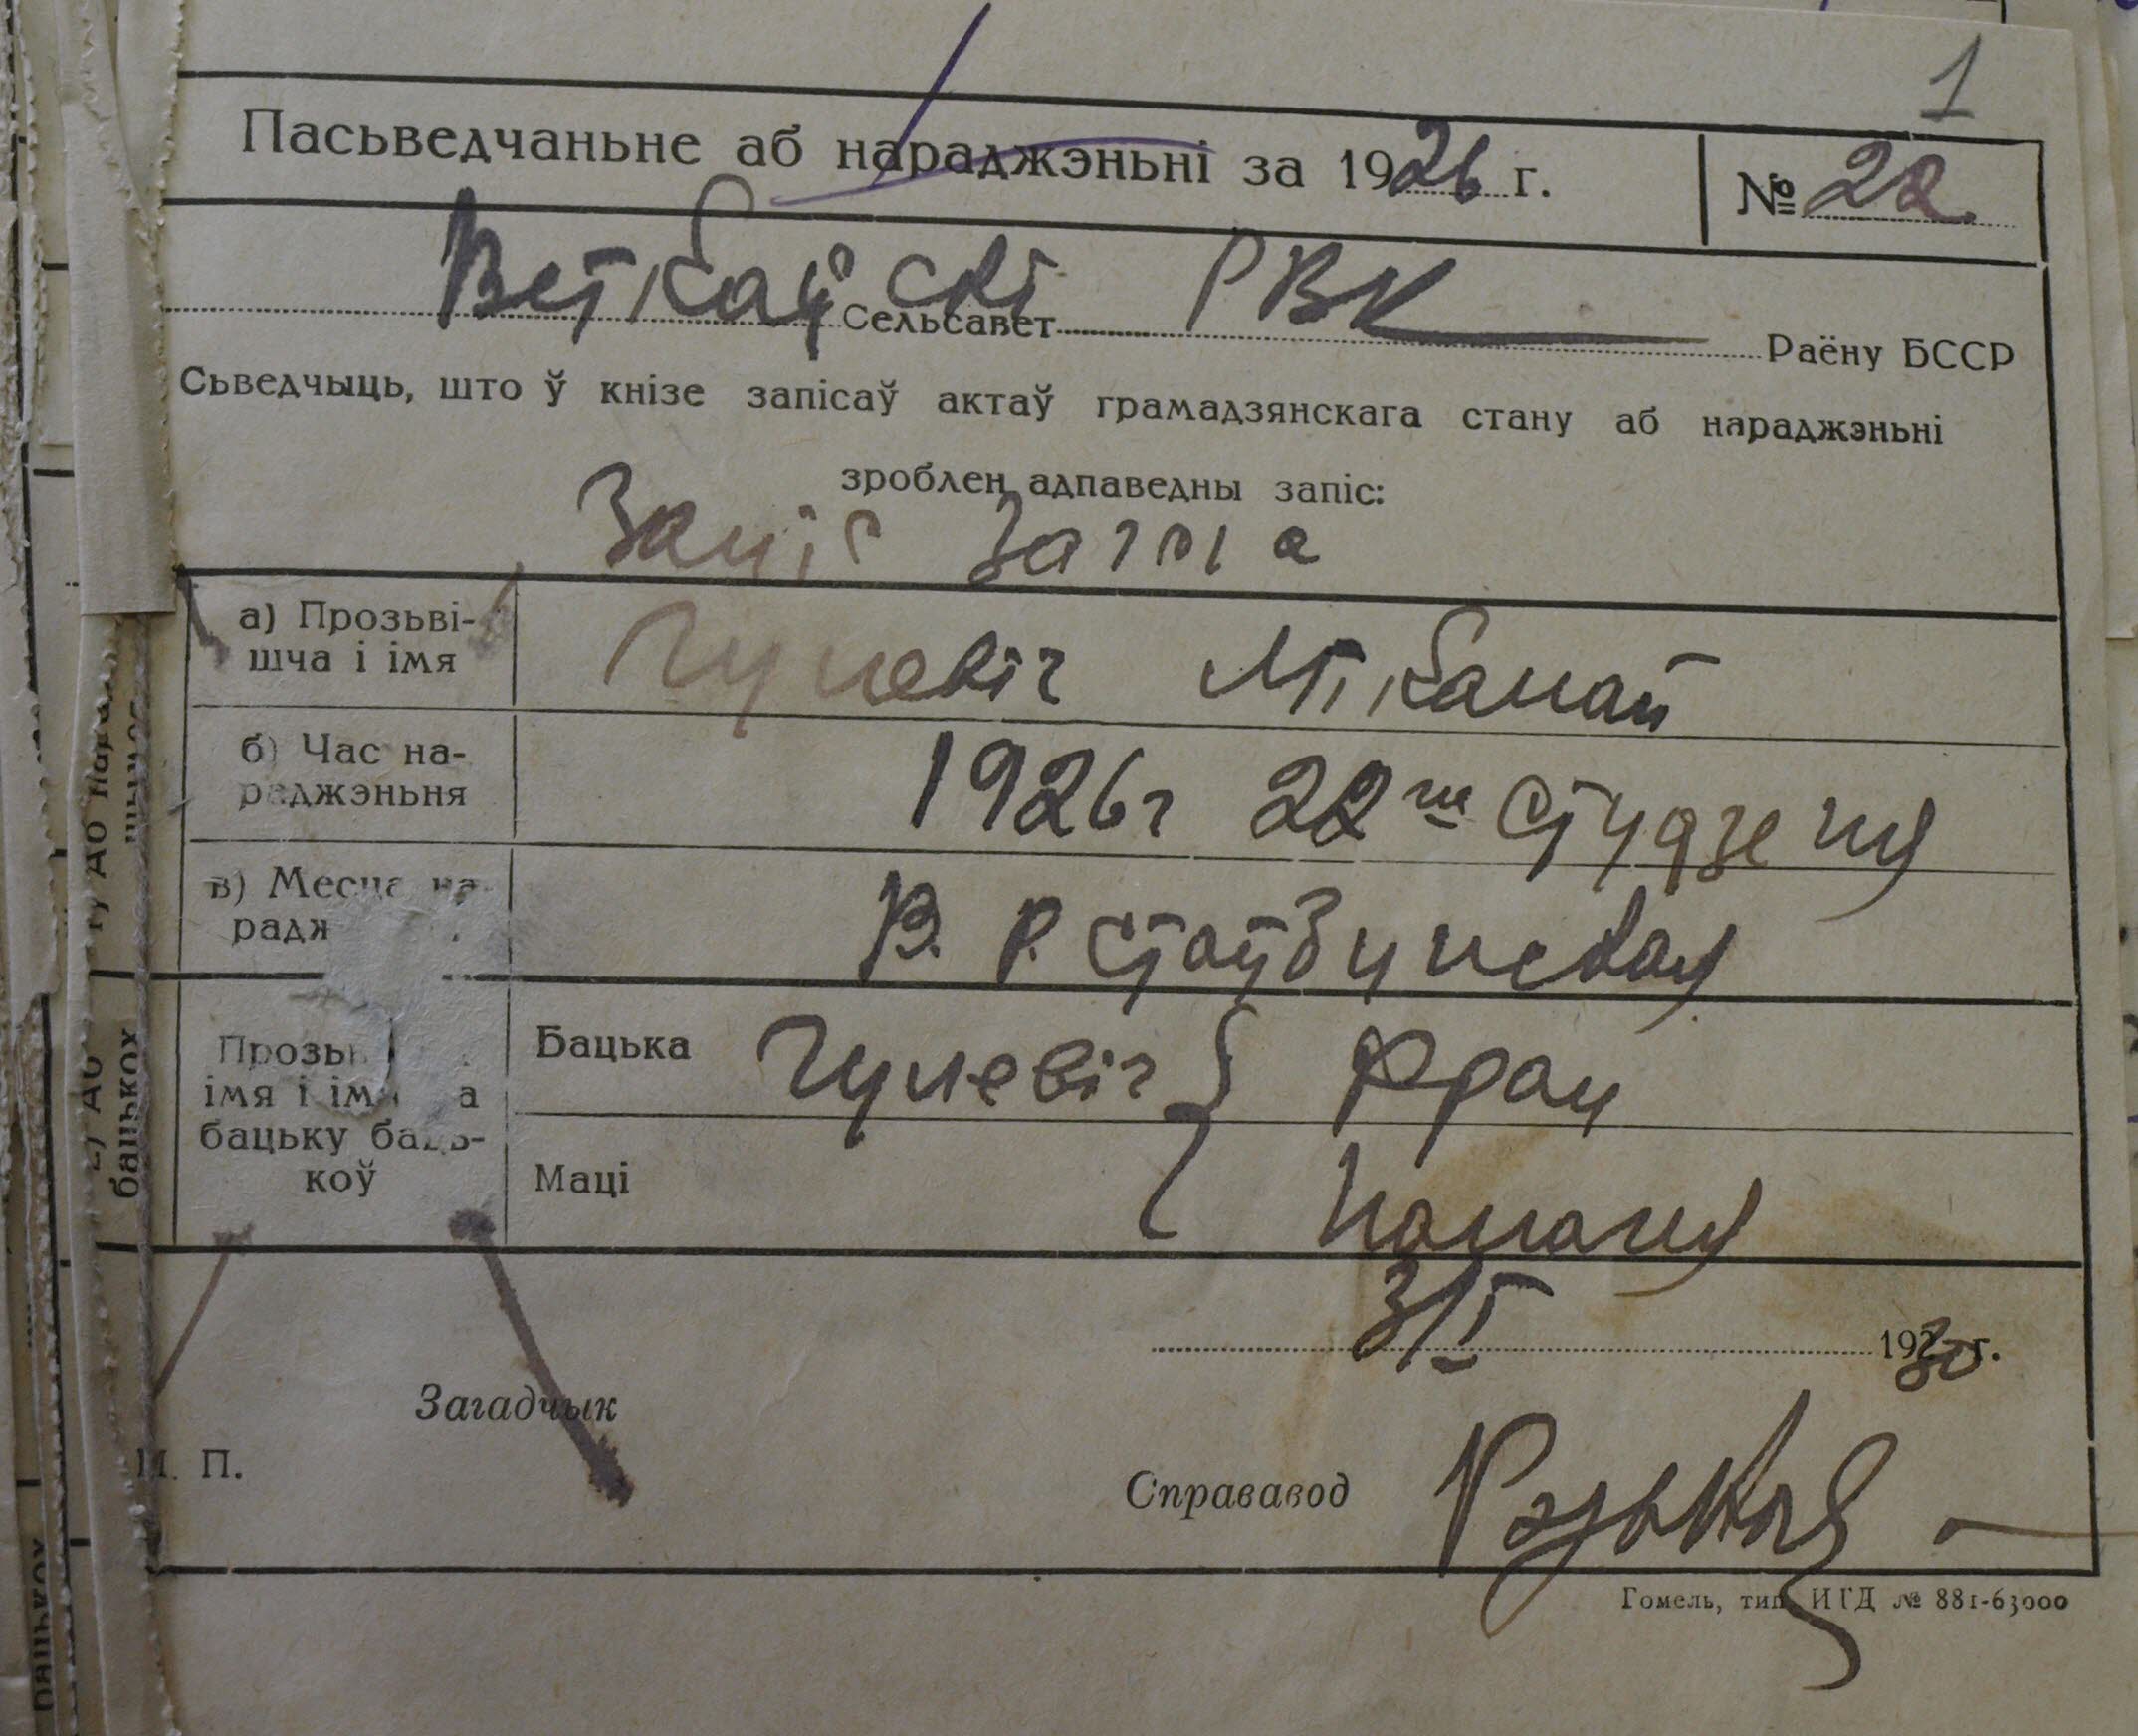 1
Пасьведчаньне аб нараджэньні за 1926 г.
№ 22
Веткаўскі РВК
Сельсавет Раёну БССР
Сьведчыць, што ў кнізе запісаў актаў грамадзянскага стану аб нараджэньні
зроблен адпаведны запіс:
Запіс Загса
а) Прозьві-
шча і імя
Гулевіч Мікалай
б) Час на-
раджэньня
1926 г 22га студзеня
в) Месца на-
радж
В. Р. Стаўбунская
Прозьв
імя і ім а
бацьку баць-
коў
Бацька Гулевіч Фрац
Маці
3/I 1930 г.
Загадчык
М. П.
Справавод
Гомель, тип. ИГД № 881-63000